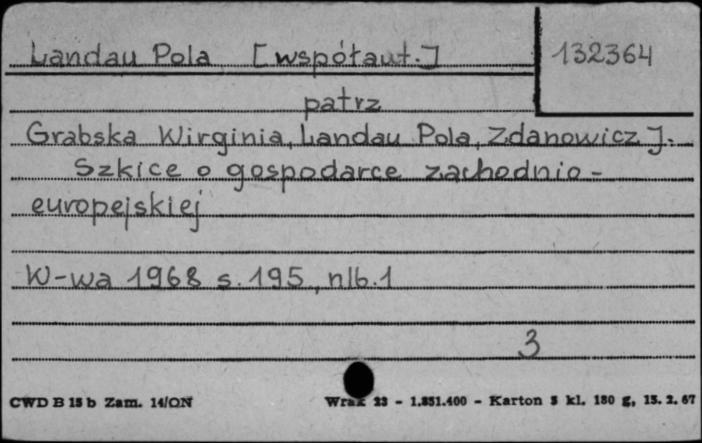 Landau Pola [współaut.] 132364
patrz
Grabska Wirginia, Landau Pola, Zdanowicz J.
Szkice o gospodarce zachodnio-
europejskiej
W-wa 1968 s. 195, nlb. 1
3
CWD B 15 b Zam. 14/ON Wrak 23 - 1.851.400 - Karton 3 kl. 180 g, 15. 2. 67